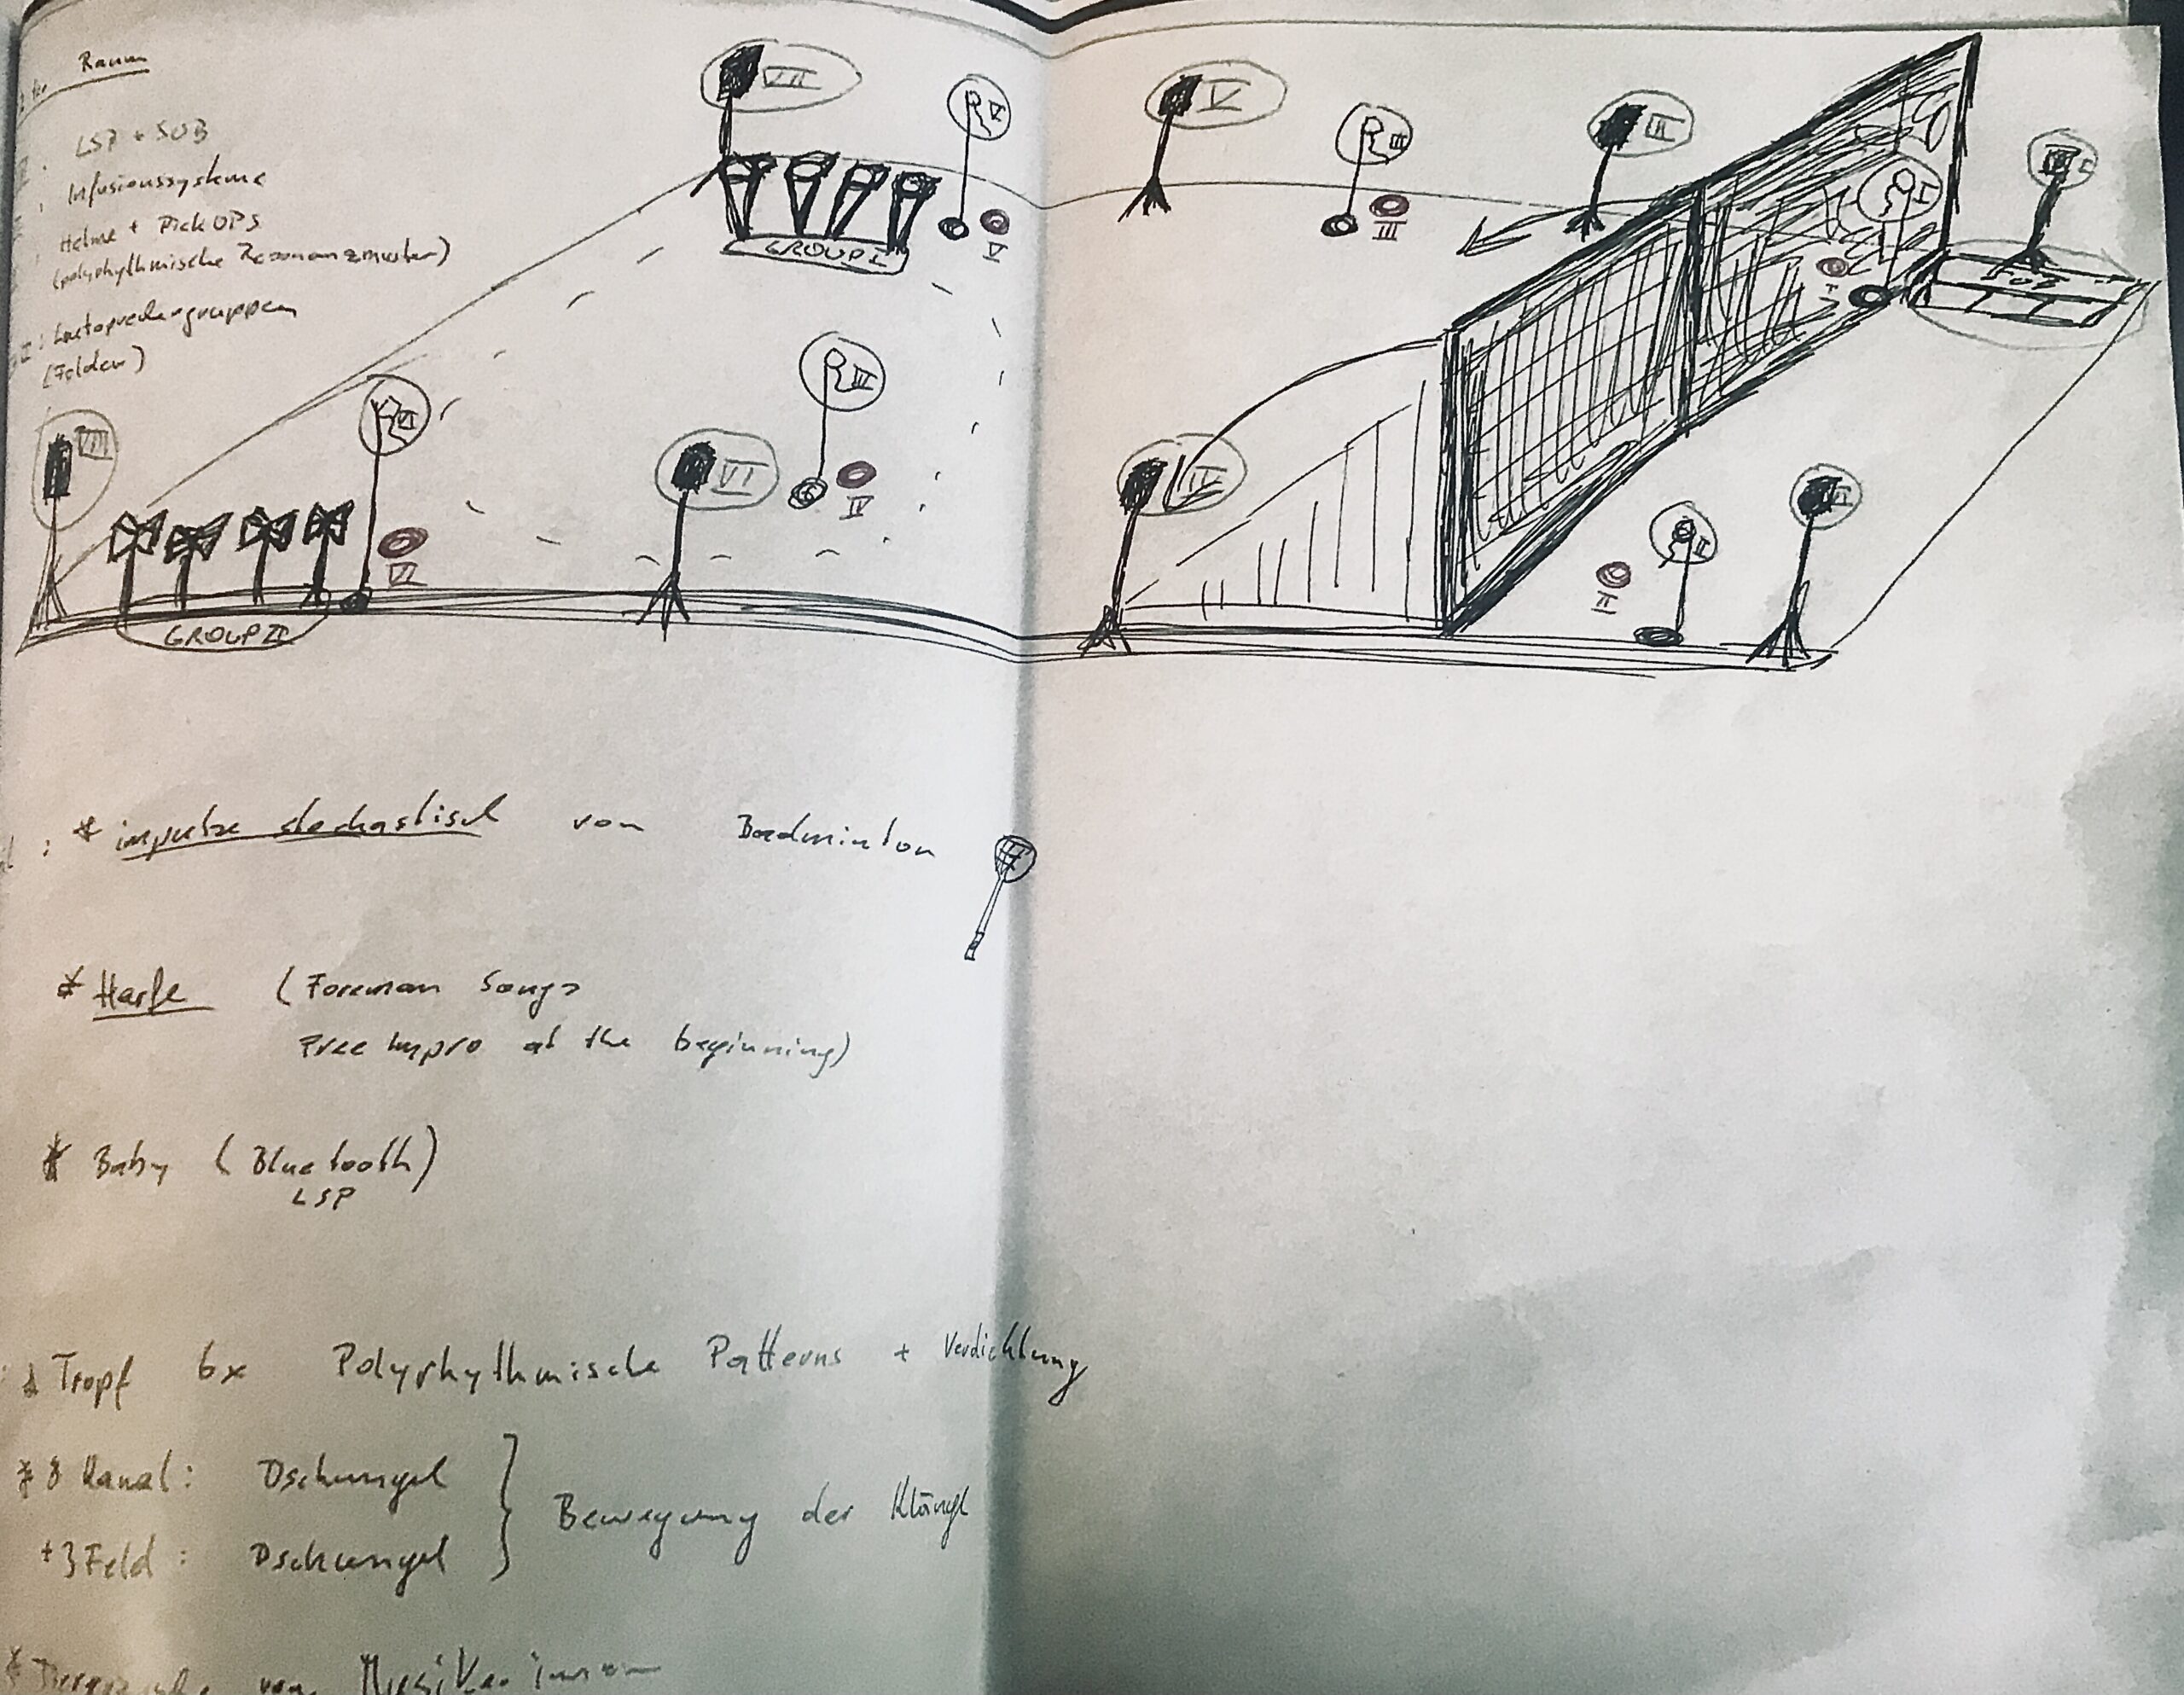 Raum
LSP + SUB
Infusionssysteme
Helme + Pick UPS
(polyrhythmische Resonanzmuster)
Lautsprechergruppen
(Felder)
VII
V
V
III
III
I
III
V
GROUP I
I
SUB
III
VI
VIII
VI
IV
IV
II
II
VI
GROUP II
* impulse stochastisch von Badminton
* Harfe (Foreman Songs
Free Impro at the beginning)
* Baby (Bluetooth)
LSP
* Tropf 6x Polyrhythmische Patterns + Verdichtung
* 8 Kanal: Dschungel
+3 Feld: Dschungel
Bewegung der Klänge
* von